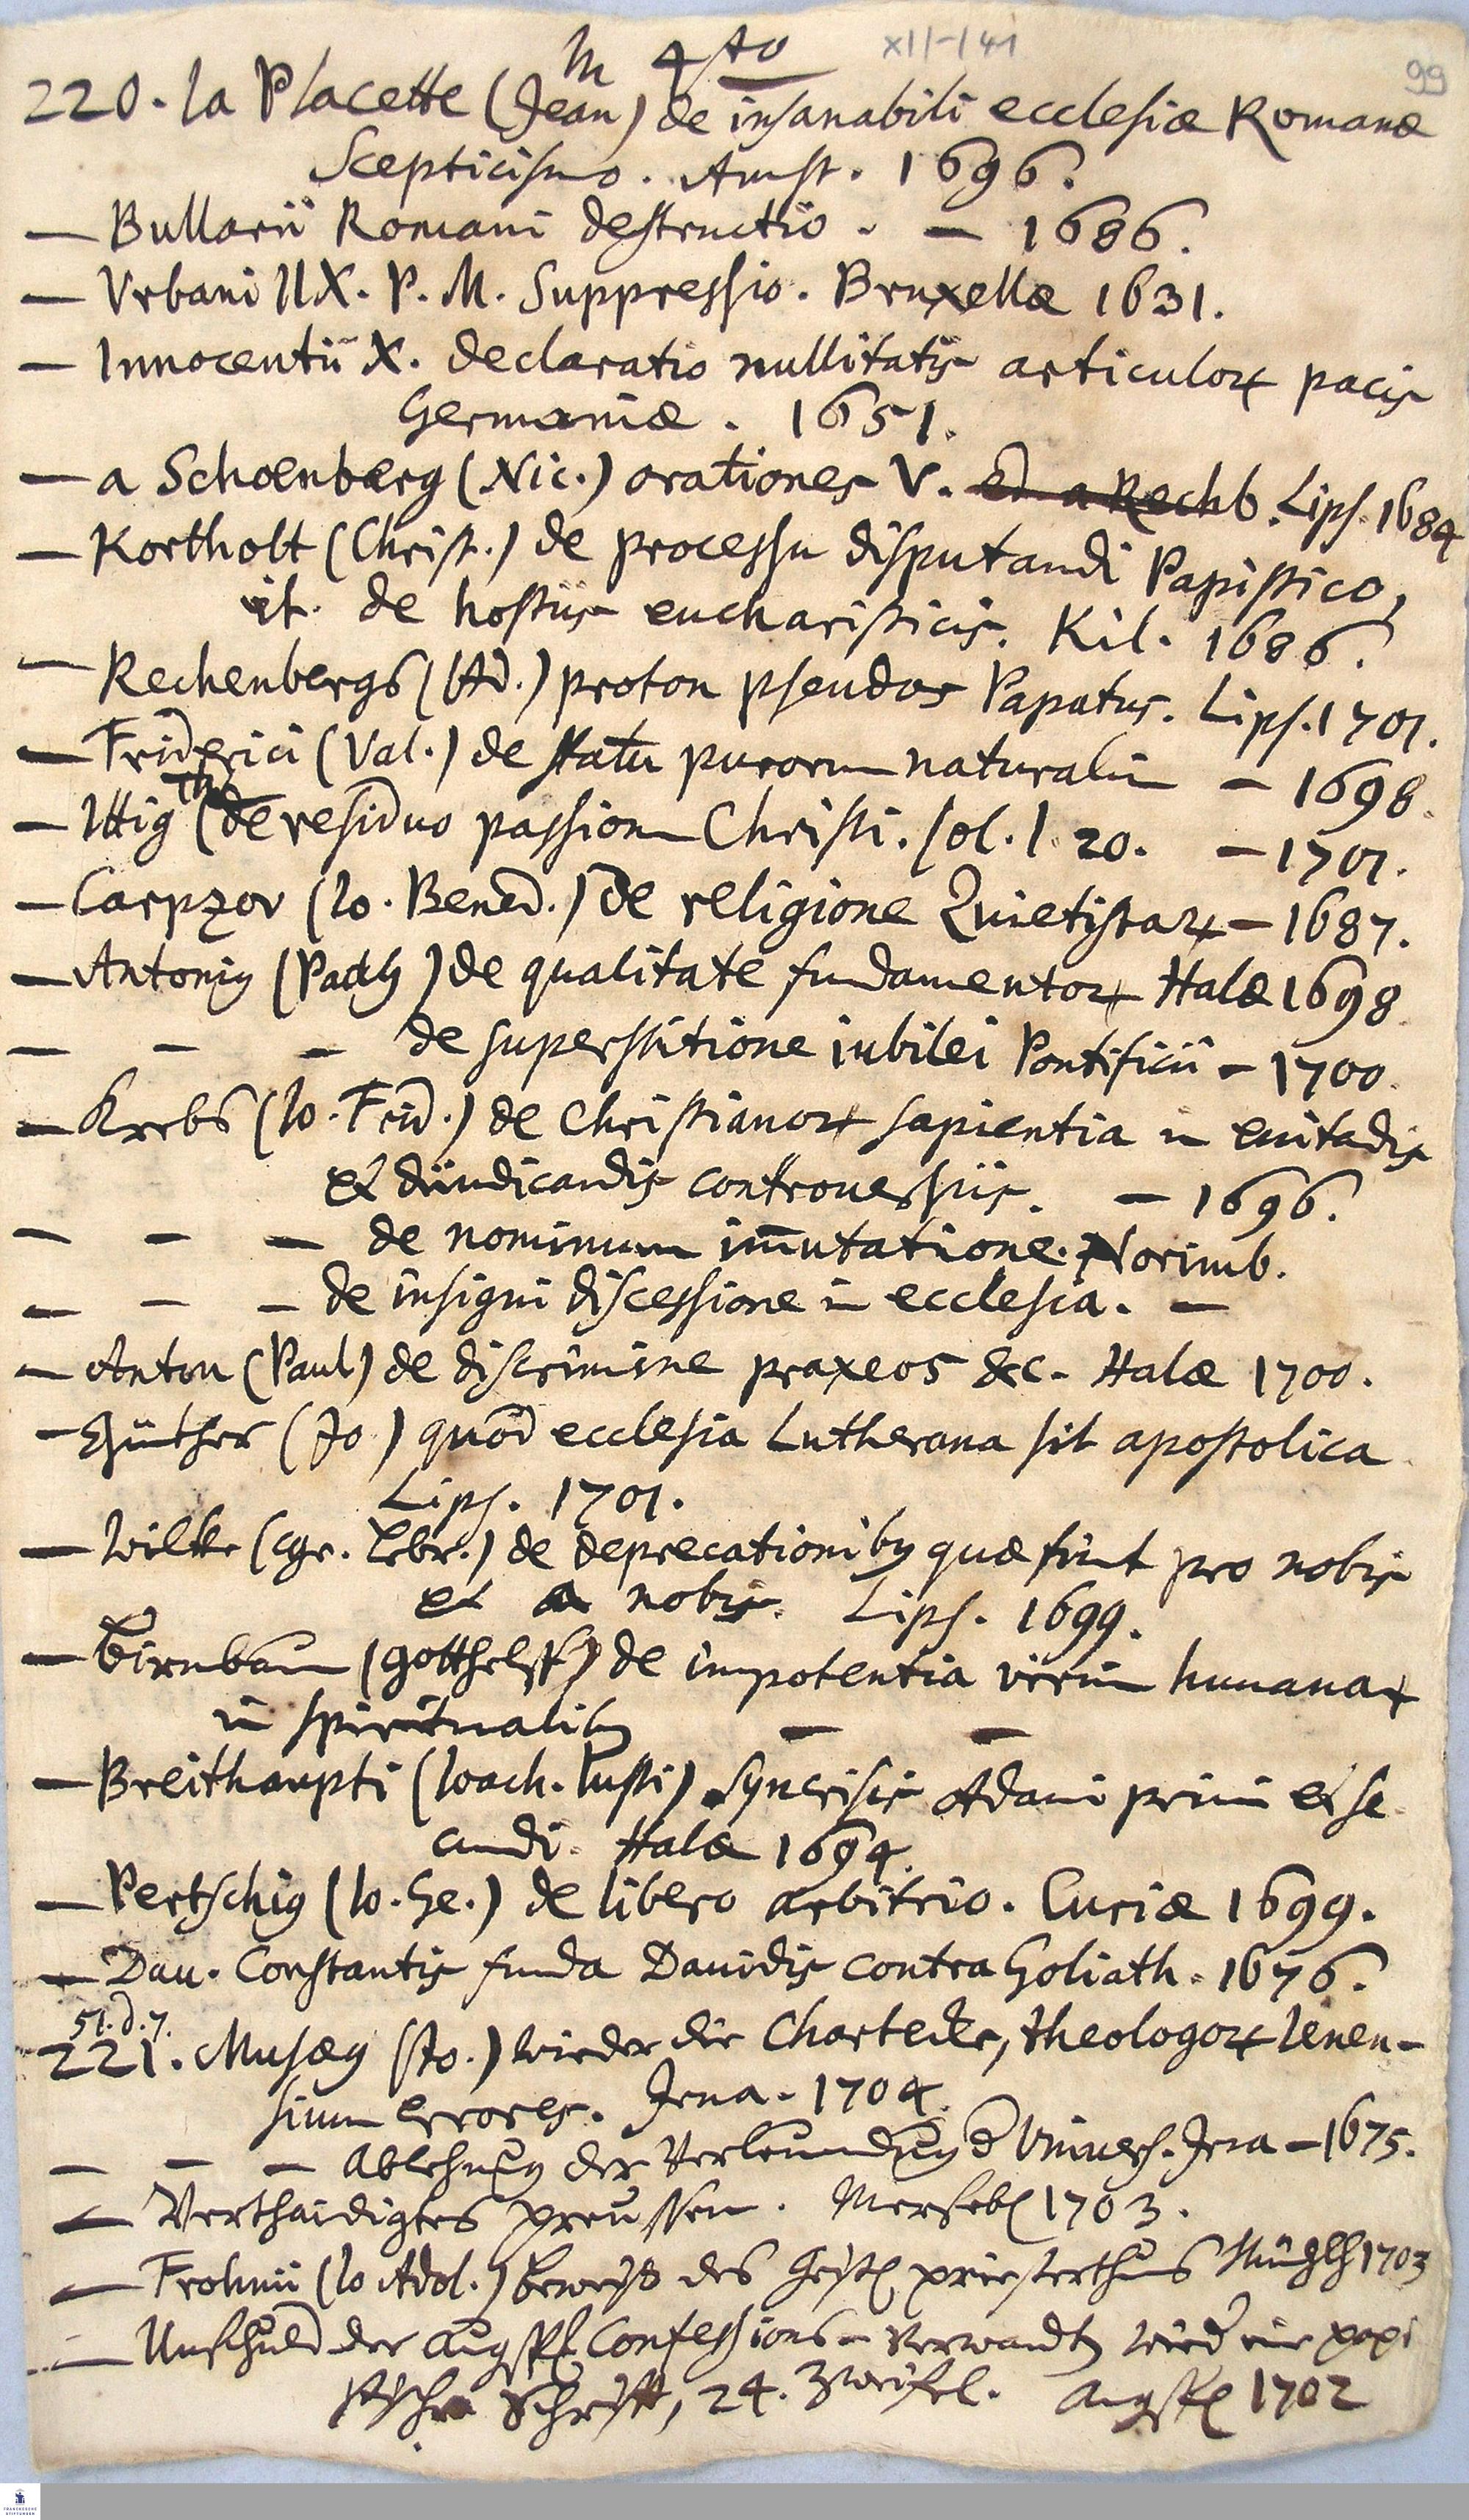 In 4to XII-141 99
220. la Placette (Jean) de insanabili ecclesiæ Romanæ
Scepticismo. Amst. 1696.
— Bullarii Romani destructio. — 1686.
— Vrbani IIX. P. M. Suppressio. Bruxellæ 1631.
— Innocentii X. declaratio nullitatis articuloꝝ pacis
Germaniæ. 1651.
— a Schoenberg (Nic.) orationes V. ed a Rechb. Lips. 1684
— Kortholt (Christ.) de processu disputandi Papistico,
it. de hostiis eucharisticis. Kil. 1686.
— Rechenbergs (Ad.) proton pseudos Papatus. Lips. 1701.
— Friderici (Val.) de statu purorum naturaliũ — 1698.
— Ittig (Th) de residuo passion Christi. Col. 1. 20. — 1701.
— Carpzov (Io. Bened.) de religione Quietistaꝝ — 1687.
— Antonius (Paul9) de qualitate fundamentoꝝ Halæ 1698
— — — de superstitione iubilei Pontificii — 1700.
— Krebs (Io. Frid.) de Christianoꝝ sapientia in euitadis
et diiudicandis controuersiis. — 1696.
— — — de nominum im̄utatione. Norimb.
— — — de insigni discessione in ecclesia. —
— Anton (Paul) de discrimine praxeos &c. Halæ 1700.
— Günther (Jo) quod ecclesia Lutherana sit apostolica
Lips. 1701.
— Wilke (Lebr.) de deprecationib9 quæ fiunt pro nobis
et a nobis. Lips. 1699.
— Birnbaum (Gotthelff) de impotentia viriũ humanaꝝ
in spiritualib9 — —
— Breithaupti (Ioach. Iusti) Syncrisis Adami primi et se
cundi. Halæ 1694.
— Pertschius (Io. Ge.) de libero arbitrio. Curiæ 1699.
— Dau. Constantis funda Dauidis contra Goliath. 1676.
51. d. 7.
221. Musæus (Jo.) wieder die Chartecke, theologoꝝ Ienen-
sium errores. Jena. 1704.
— — — Ablehnung der Verleumdung d Vniuers. Jena — 1675.
— Verthaidigtes Preussen. Merseb. 1703.
— Frohnii (Io Adol.) Beweiß des Geistl. Priesterthums Mühlh 1703
— Unschuld der Augsp. Confessions-Verwandten wieder eine papi
stische Schrifft, 24. Zweifel. Augsp. 1702